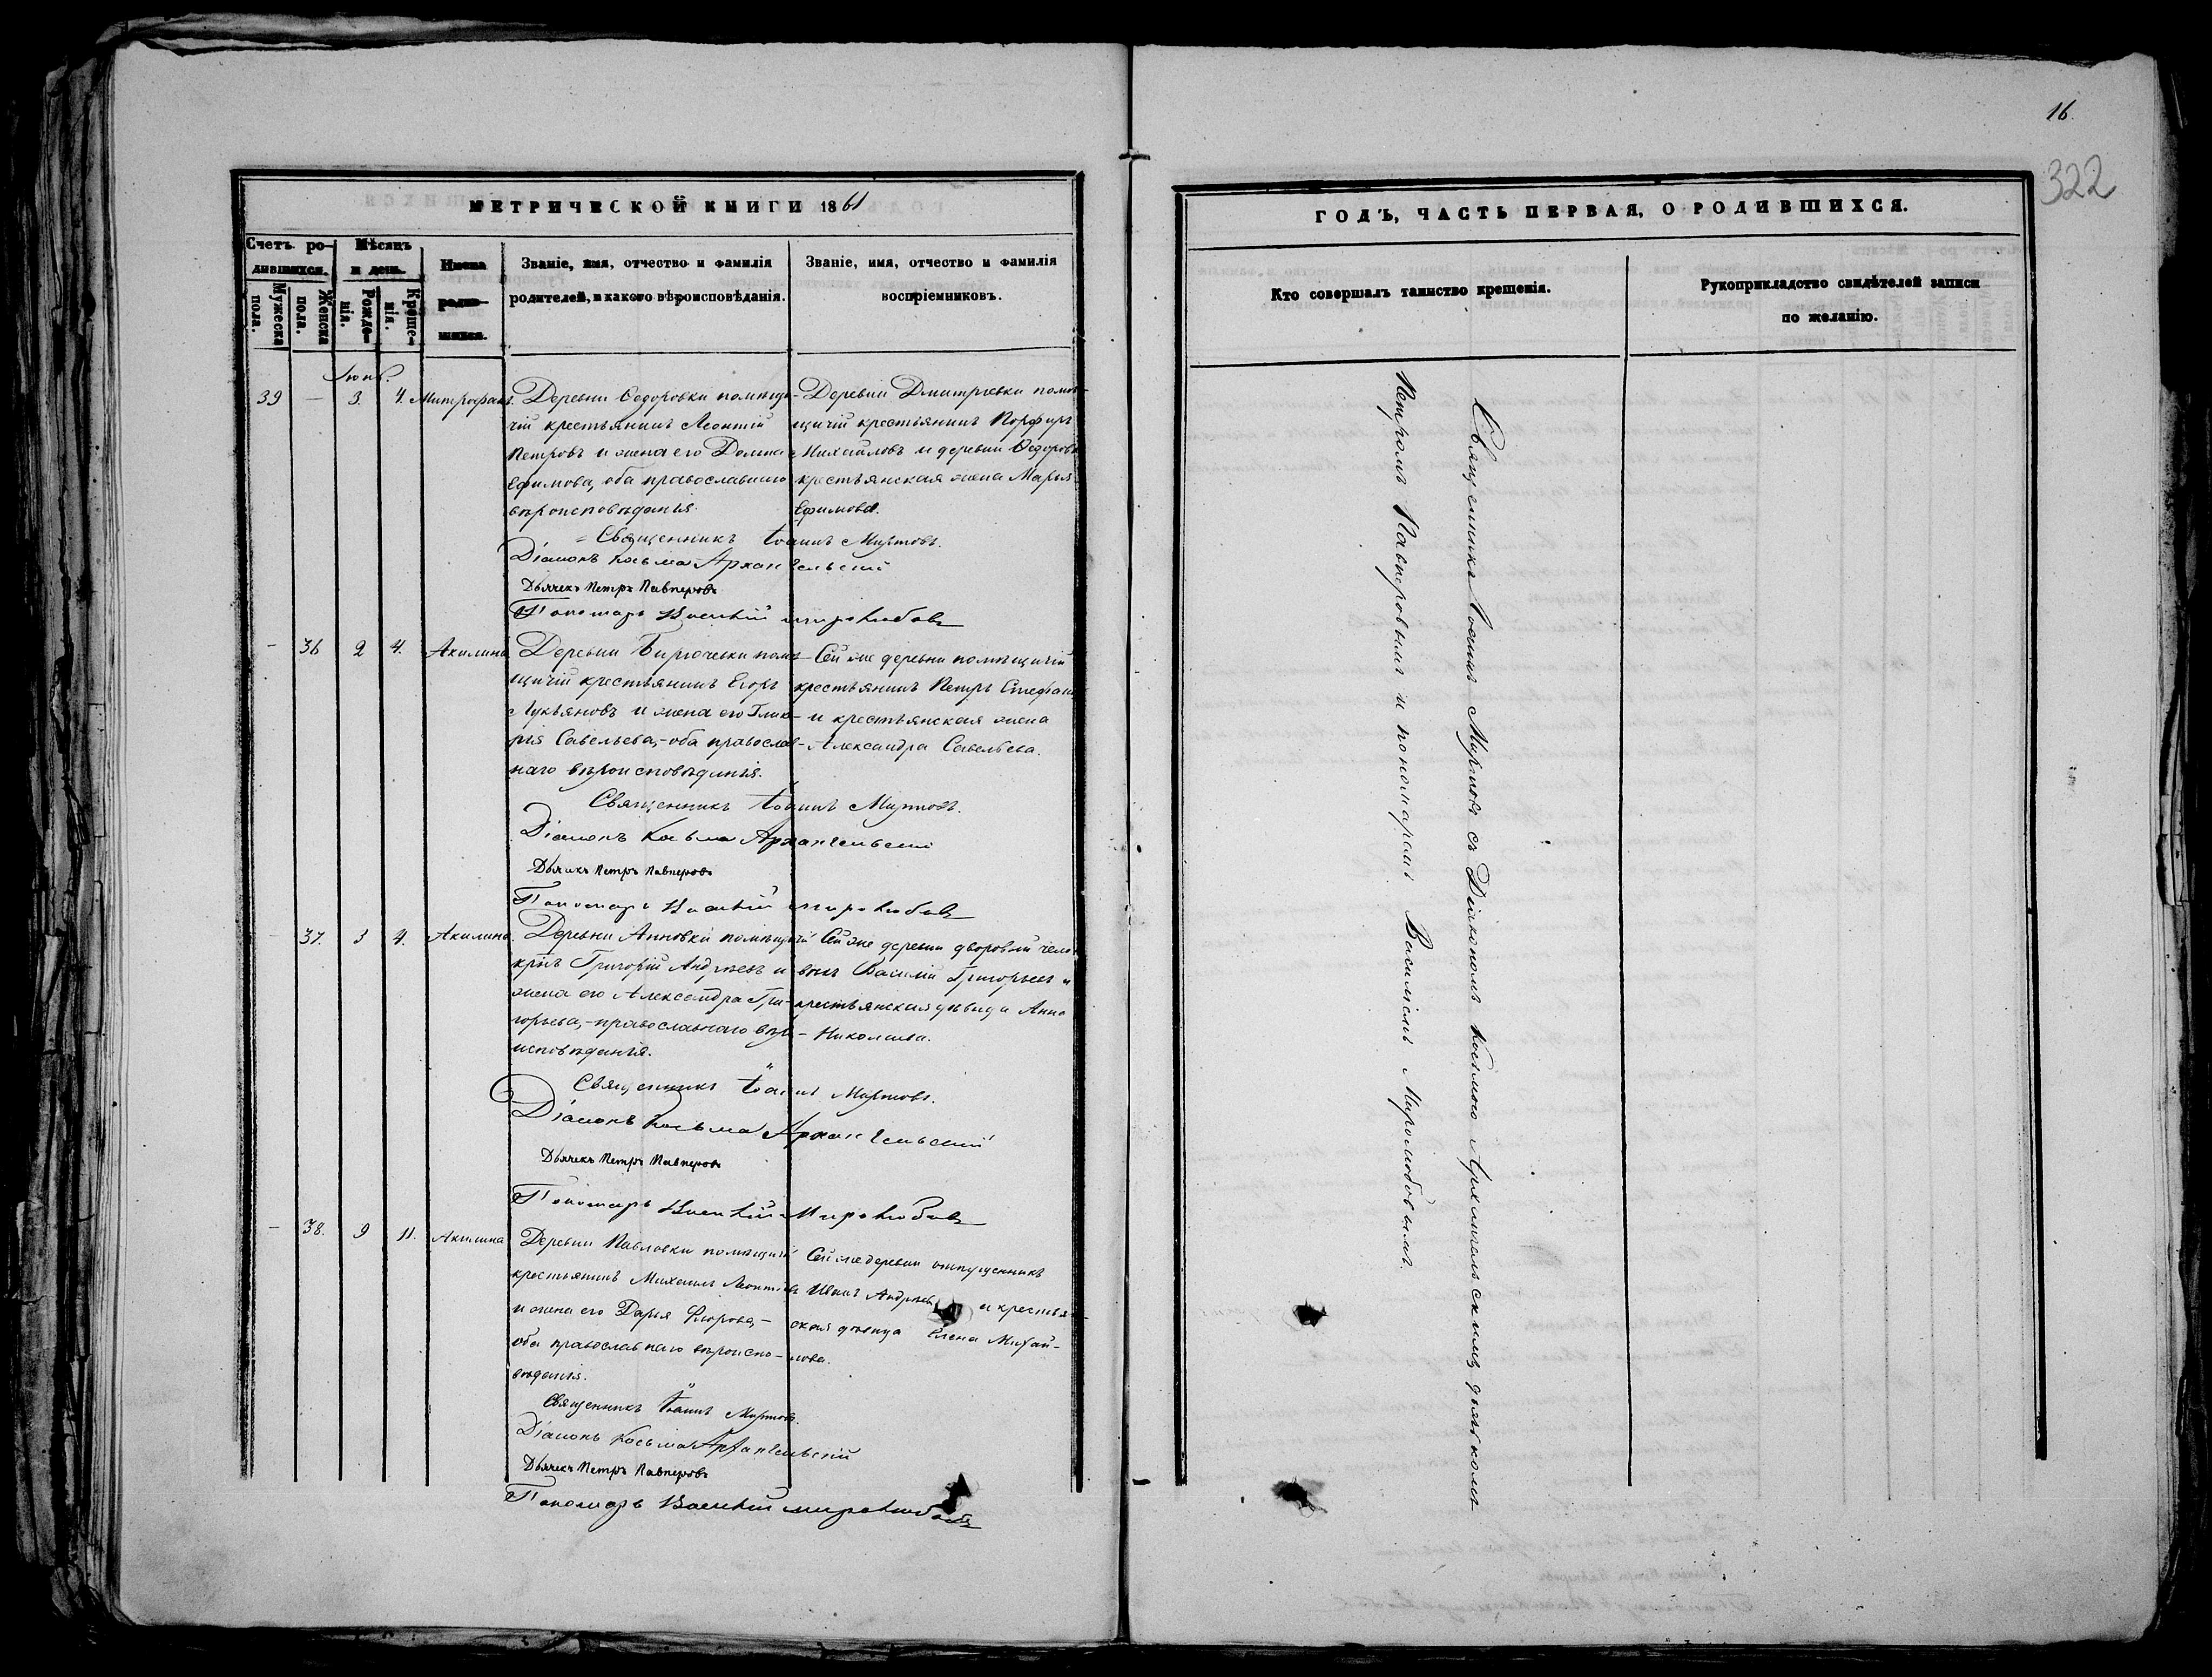 16.
322
МЕТРИЧЕСКОЙ КНИГИ 1861
Счетъ ро-
дившихся.
Мѣсяцъ
и день.
Имена
роди-
вшихся.
Званіе, имя, отчество и фамилія
родителей, и какого вѣроисповѣданія.
Званіе, имя, отчество и фамилія
воспріемниковъ.
Мужеска
пола.
Женска
пола.
Рожде-
нія.
Креще-
нія.
Іюнь.
39 — 3. 4. Митрофанъ.
Деревни Ѳедоровки помѣщи-
чій крестьянинъ Леонтій
Петровъ и жена его Домна
Ефимова, оба православнаго
вѣроисповѣданія.
Деревни Дмитріевки помѣ-
щичій крестьянинъ Порфиръ
Михайловъ и деревни Ѳедоровки
крестьянская жена Марья
Ефимова.
Священникъ Іоаннъ Миртовъ.
Діаконъ Косьма Архангельскій
Дьячекъ Петръ Павперовъ
Пономарь Василій Миролюбовъ
- 36 2 4. Акилина
Деревни Бирючевки помѣ-
щичій крестьянинъ Егоръ
Лукьяновъ и жена его Глике-
рія Савельева, - оба православ-
наго вѣроисповѣданія.
Сей же деревни помѣщичій
крестьянинъ Петръ Стефановъ
и крестьянская жена
Александра Савельева.
Священникъ Іоаннъ Миртовъ.
Діаконъ Косьма Архангельскій
Дьячекъ Петръ Павперовъ
Пономарь Василій Миролюбовъ
- 37. 3 4. Акилина.
Деревни Анновки помѣщичій
крнъ Григорій Андреевъ и
жена его Александра Гри-
горьева, - православнаго вѣро-
исповѣданія.
Сей же деревни дворовый чело-
вѣкъ Василій Григорьевъ и
крестьянская дѣвица Анна
Николаева.
Священникъ Іоаннъ Миртовъ.
Діаконъ Косьма Архангельскій
Дьячекъ Петръ Павперовъ
Пономарь Василій Миролюбовъ
- 38. 9 11. Акилина
Деревни Павловки помѣщичій
крестьянинъ Михаилъ Леонтьевъ
и жена его Дарья Флорова, -
оба православнаго вѣроиспо-
вѣданія.
Сей же деревни отпущенникъ
Иванъ Андреевъ и крестьян-
ская дѣвица Елена Михай-
лова.
Священникъ Іоаннъ Миртовъ.
Діаконъ Косьма Архангельскій
Дьячекъ Петръ Павперовъ
Пономарь Василій Миролюбовъ
ГОДЪ, ЧАСТЬ ПЕРВАЯ, О РОДИВШИХСЯ.
Кто совершалъ таинство крещенія.
Рукоприкладство свидѣтелей записи
по желанію.
Священникъ Іоаннъ Миртовъ съ Діакономъ Косьмою Архангельскимъ, дьячкомъ
Петромъ Павперовымъ и пономаремъ Василіемъ Миролюбовымъ.